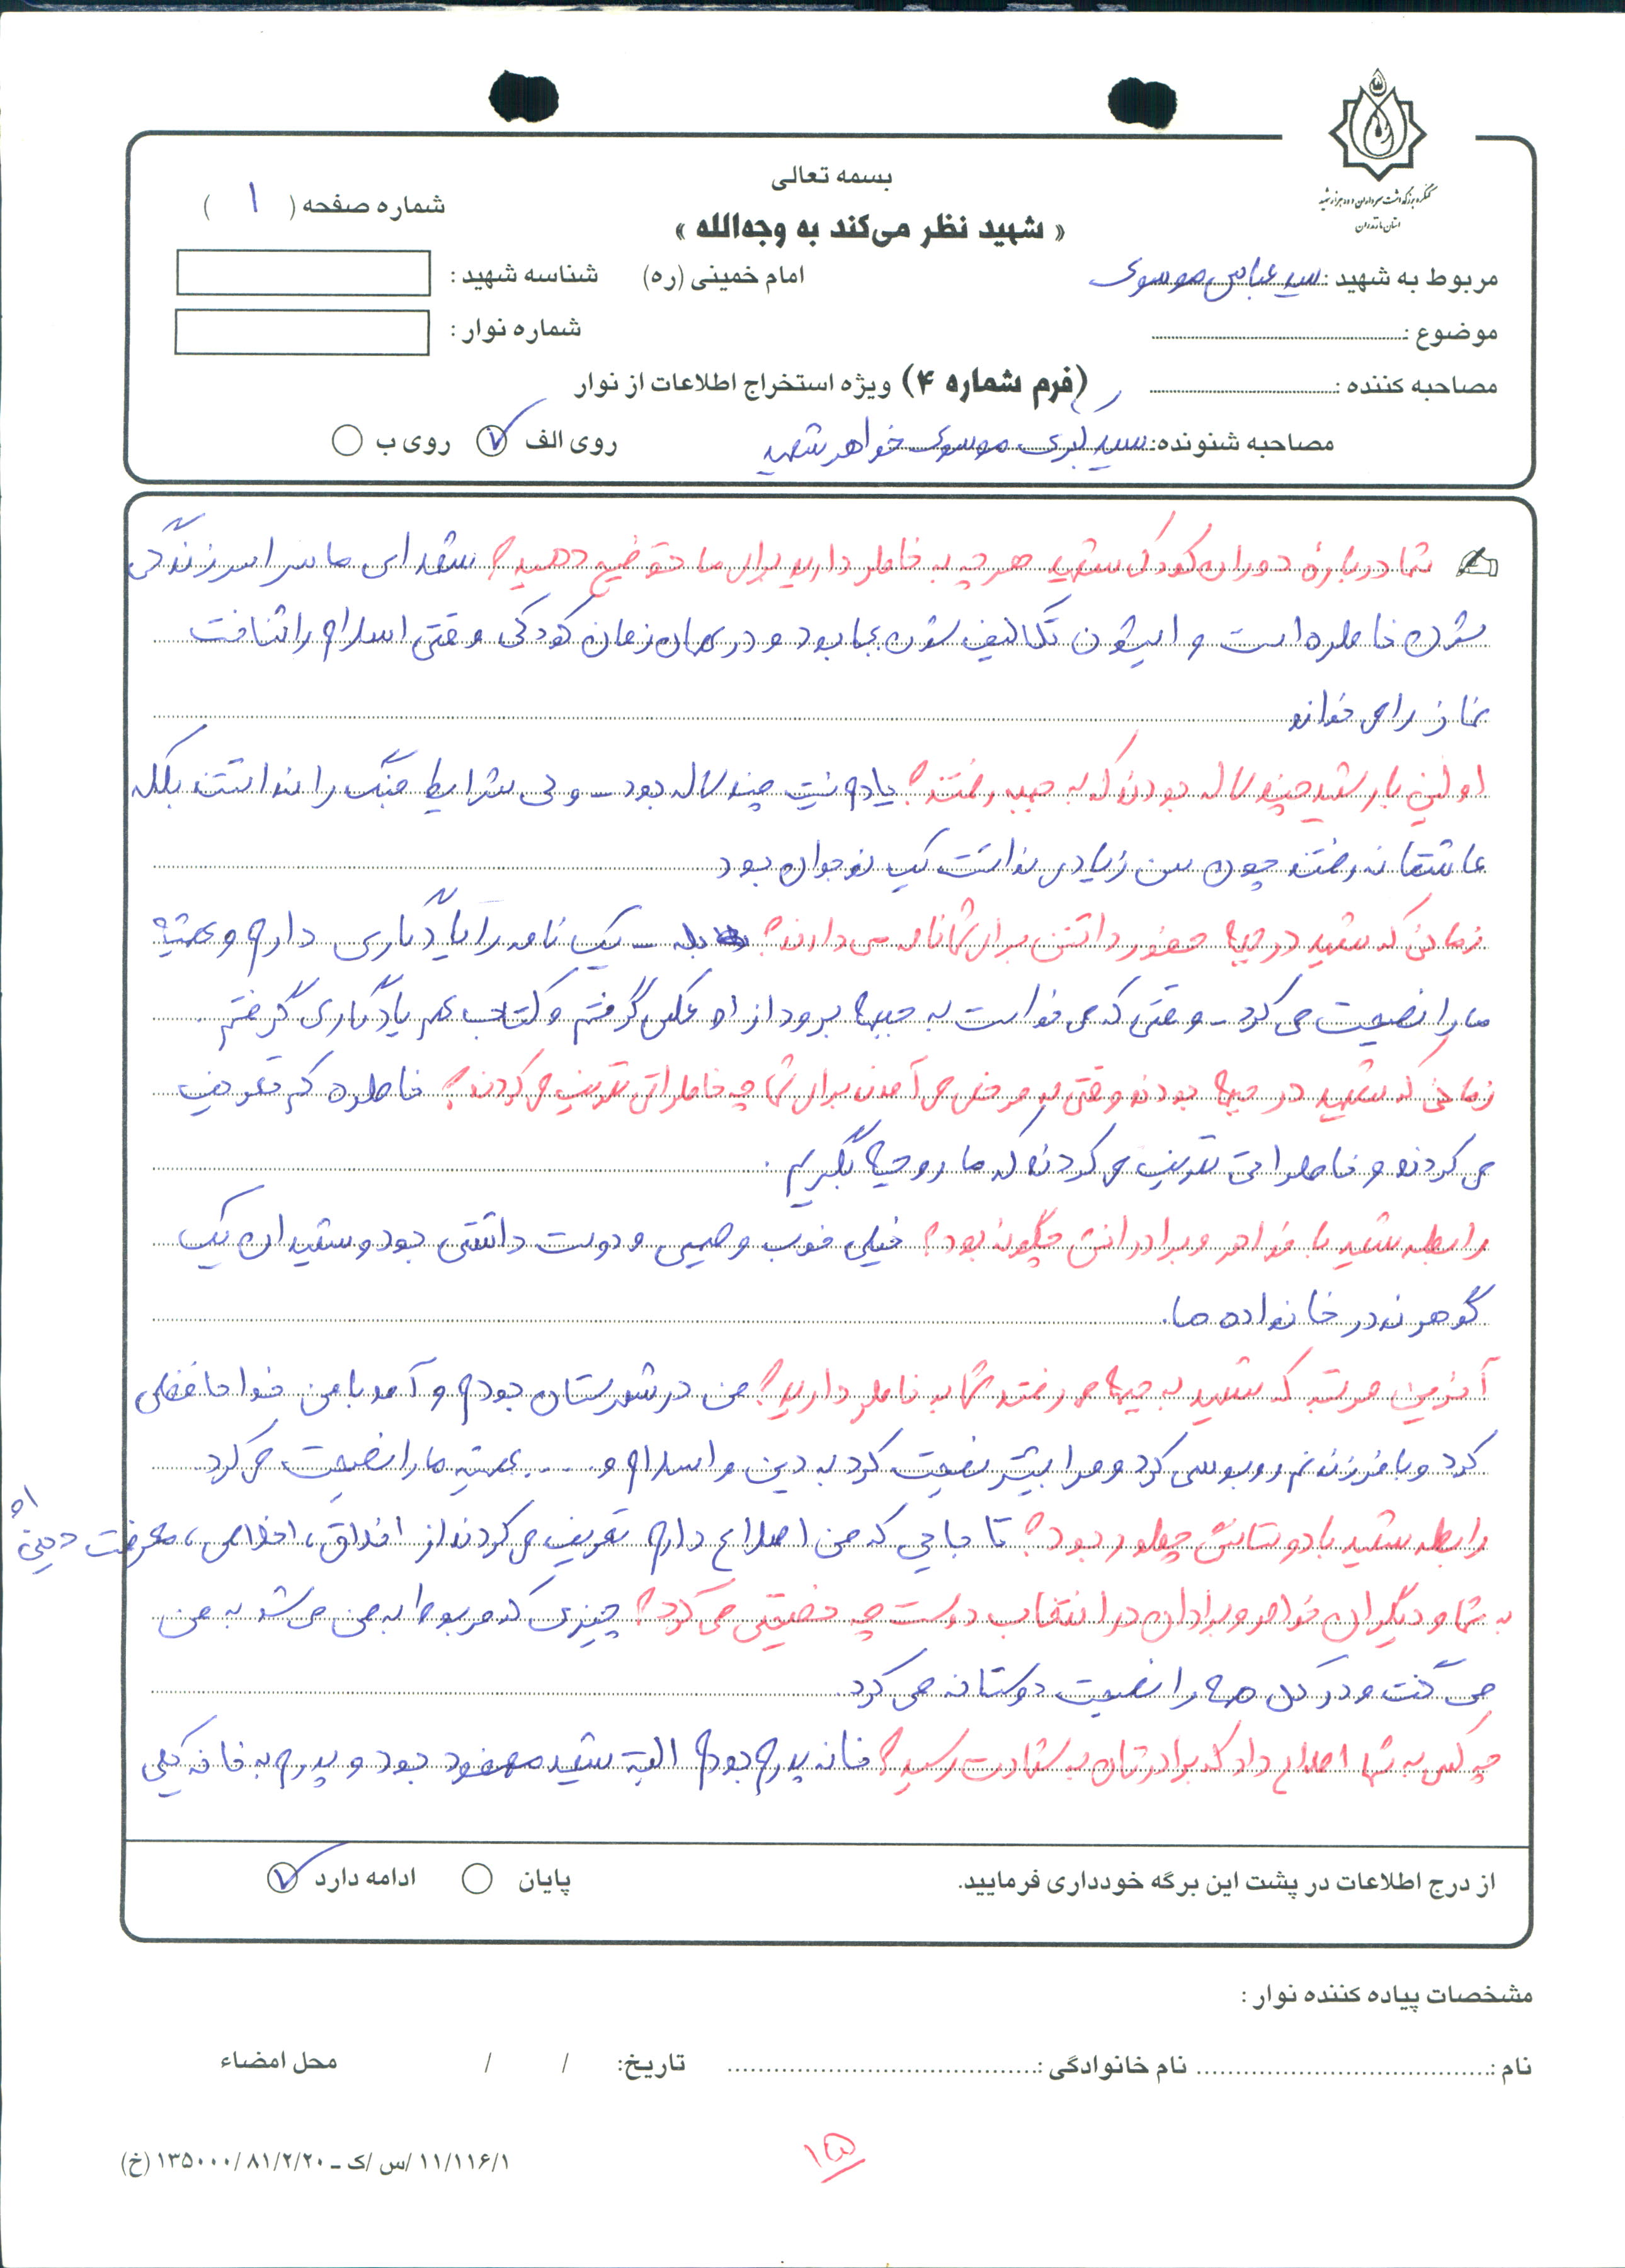 کنگره بزرگداشت سرداران و ده هزار شهید
استان مازندران
بسمه تعالی
« شهید نظر می‌کند به وجه‌الله »
شماره صفحه ( ۱ )
مربوط به شهید : سید عباس موسوی
امام خمینی (ره)
شناسه شهید :
موضوع :
شماره نوار :
مصاحبه کننده :
(فرم شماره ۴) ویژه استخراج اطلاعات از نوار
مصاحبه شنونده: سید کبری موسوی خواهر شهید
روی الف ✓ روی ب
شما درباره دوران کودکی شهید هر چه به خاطر دارید برای ما توضیح دهید؟ شهدای ما سراسر زندگی
شون خاطره است و ایشون تکالیف شون بجا بود و در همان زمان کودکی وقتی اسلام را شناخت
نماز را می خواند
اولین بار شهید چند ساله بودند که به جبهه رفتند؟ یادم نیست چند ساله بود - ولی شرایط جنگ را نداشتند بلکه
عاشقانه رفتند چون سن زیادی نداشت یک نوجوان بود
زمانی که شهید در جبهه حضور داشتن برای شما نامه می دادند؟ بله - یک نامه را یادگاری دارم و همیشه
ما را نصیحت می کرد - وقتی که می خواست به جبهه برود از او عکس گرفتم و کتاب هم یادگاری گرفتم.
زمانی که شهید در جبهه بودند وقتی به مرخصی می آمدند برای شما چه خاطراتی تعریف می کردند؟ خاطره کم تعریف
می کردند و خاطراتی تعریف می کردند که ما روحیه بگیریم.
رابطه شهید با خواهر و برادرانش چگونه بود؟ خیلی خوب و صمیمی و دوست داشتنی بود و شهیدان یک
گوهرند در خانواده ما.
آخرین مرتبه که شهید به جبهه می رفتند شما به خاطر دارید؟ من در شهرستان بودم و آمد با من خداحافظی
کرد و با فرزندنم روبوسی کرد و مرا بیشتر نصیحت کرد به دین و اسلام و .... همیشه ما را نصیحت می کرد.
رابطه شهید با دوستانش چطور بود؟ تا جایی که من اطلاع دارم تعریف می کردند از اخلاق، اخلاص، معرفت دینی اش
به شما و دیگران خواهر و برادران در انتخاب دوست چه نصیحتی می کرد؟ چیزی که مربوط به من می شد به من
می گفت و در کل همه را نصیحت دوستانه می کرد.
چه کسی به شما اطلاع داد که برادرتان به شهادت رسید؟ خانه پدرم بودم البته شهید مفقود بود و پدرم به خانه یکی
از درج اطلاعات در پشت این برگه خودداری فرمایید.
پایان ادامه دارد ✓
مشخصات پیاده کننده نوار :
نام : نام خانوادگی : تاریخ: / / محل امضاء
۱۵
۱۱/۱۱۶/۱ /س /ک – ۸۱/۲/۲۰ /۱۳۵۰۰۰ (خ)